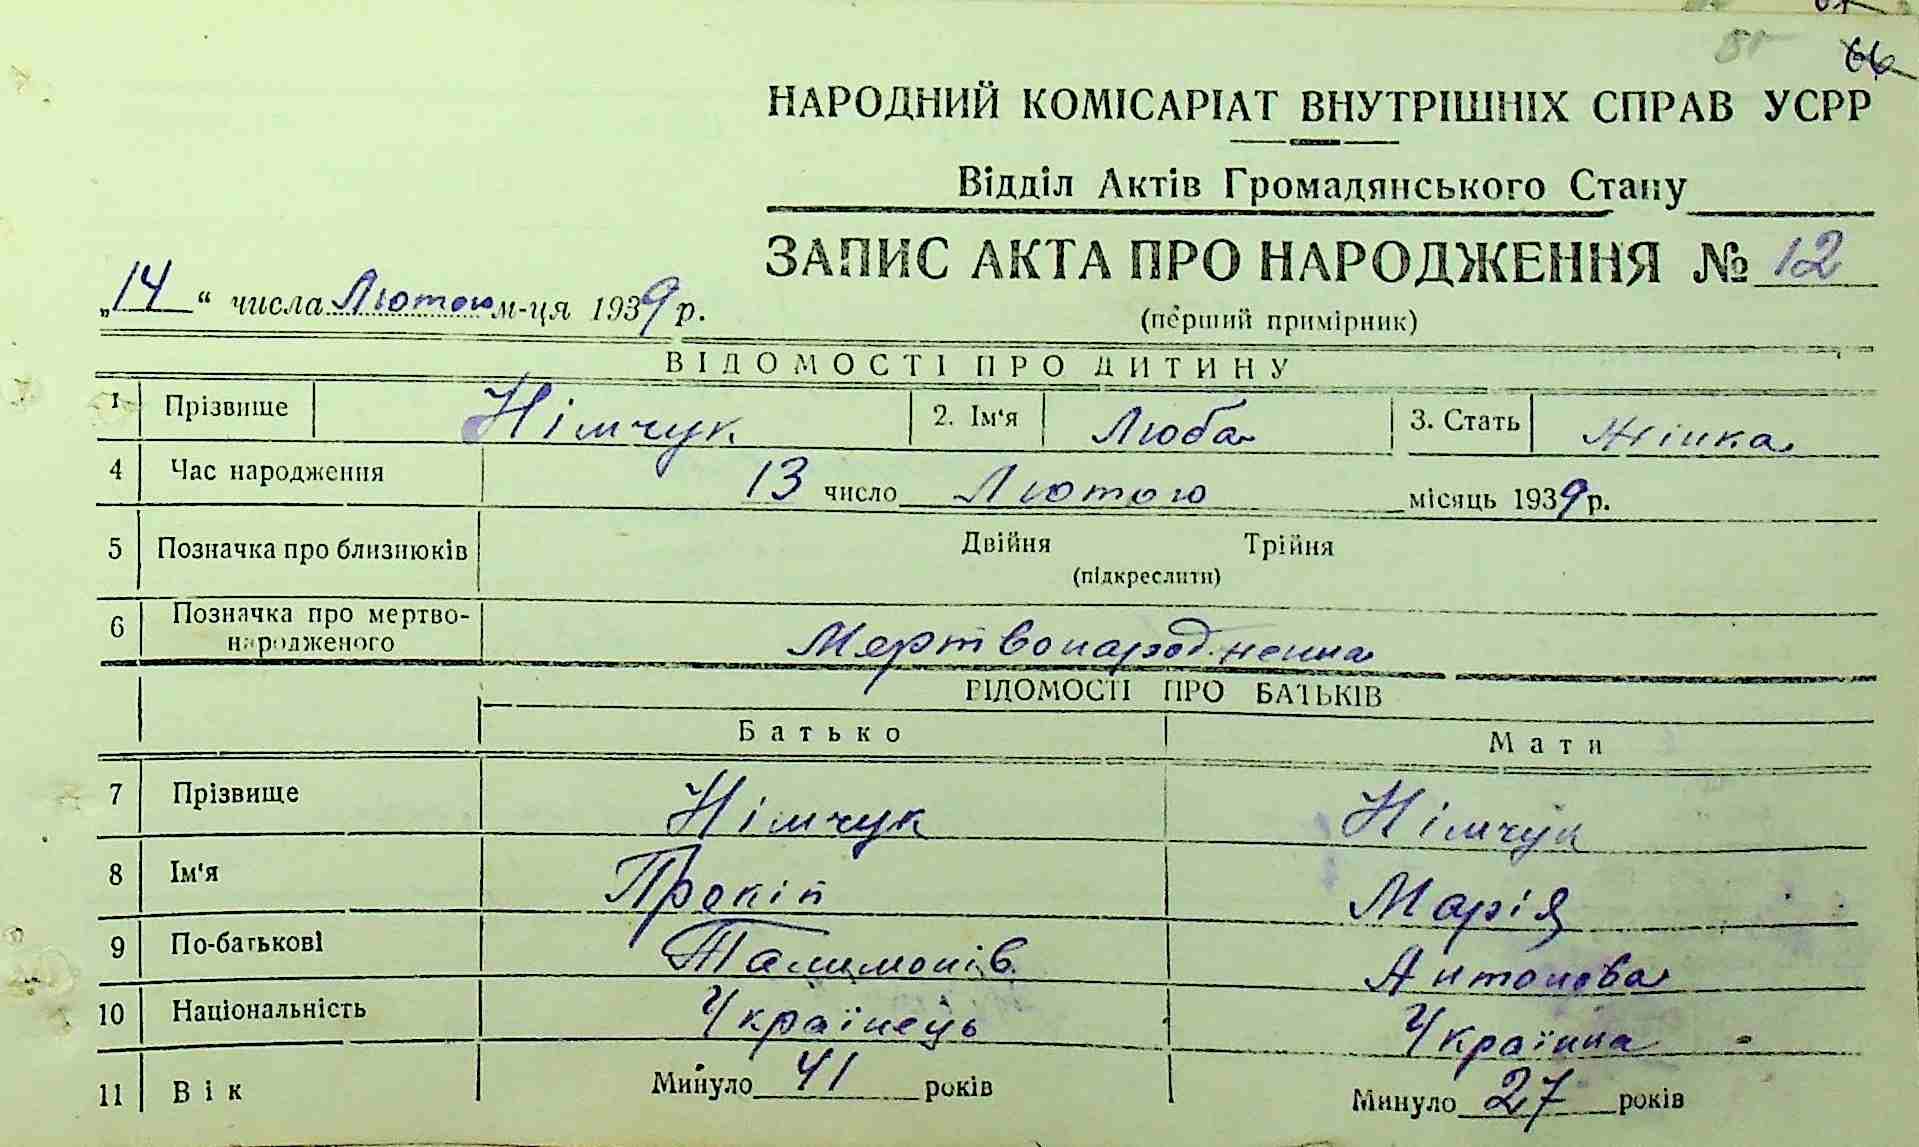 66
НАРОДНИЙ КОМІСАРІАТ ВНУТРІШНІХ СПРАВ УСРР
Відділ Актів Громадянського Стану
ЗАПИС АКТА ПРО НАРОДЖЕННЯ № 12
„14“ числа Лютого м-ця 1939 р.
(перший примірник)
ВІДОМОСТІ ПРО ДИТИНУ
1 Прізвище Німчук 2. Ім'я Люба 3. Стать жінка
4 Час народження 13 число Лютого місяць 1939 р.
5 Позначка про близнюків Двійня Трійня
(підкреслити)
6 Позначка про мертво-
народженого Мертвонародженна
ВІДОМОСТІ ПРО БАТЬКІВ
Батько Мати
7 Прізвище Німчук Німчук
8 Ім'я Прокіп Марія
9 По-батькові Талимонів Антонова
10 Національність Українець Українка
11 Вік Минуло 41 років Минуло 27 років